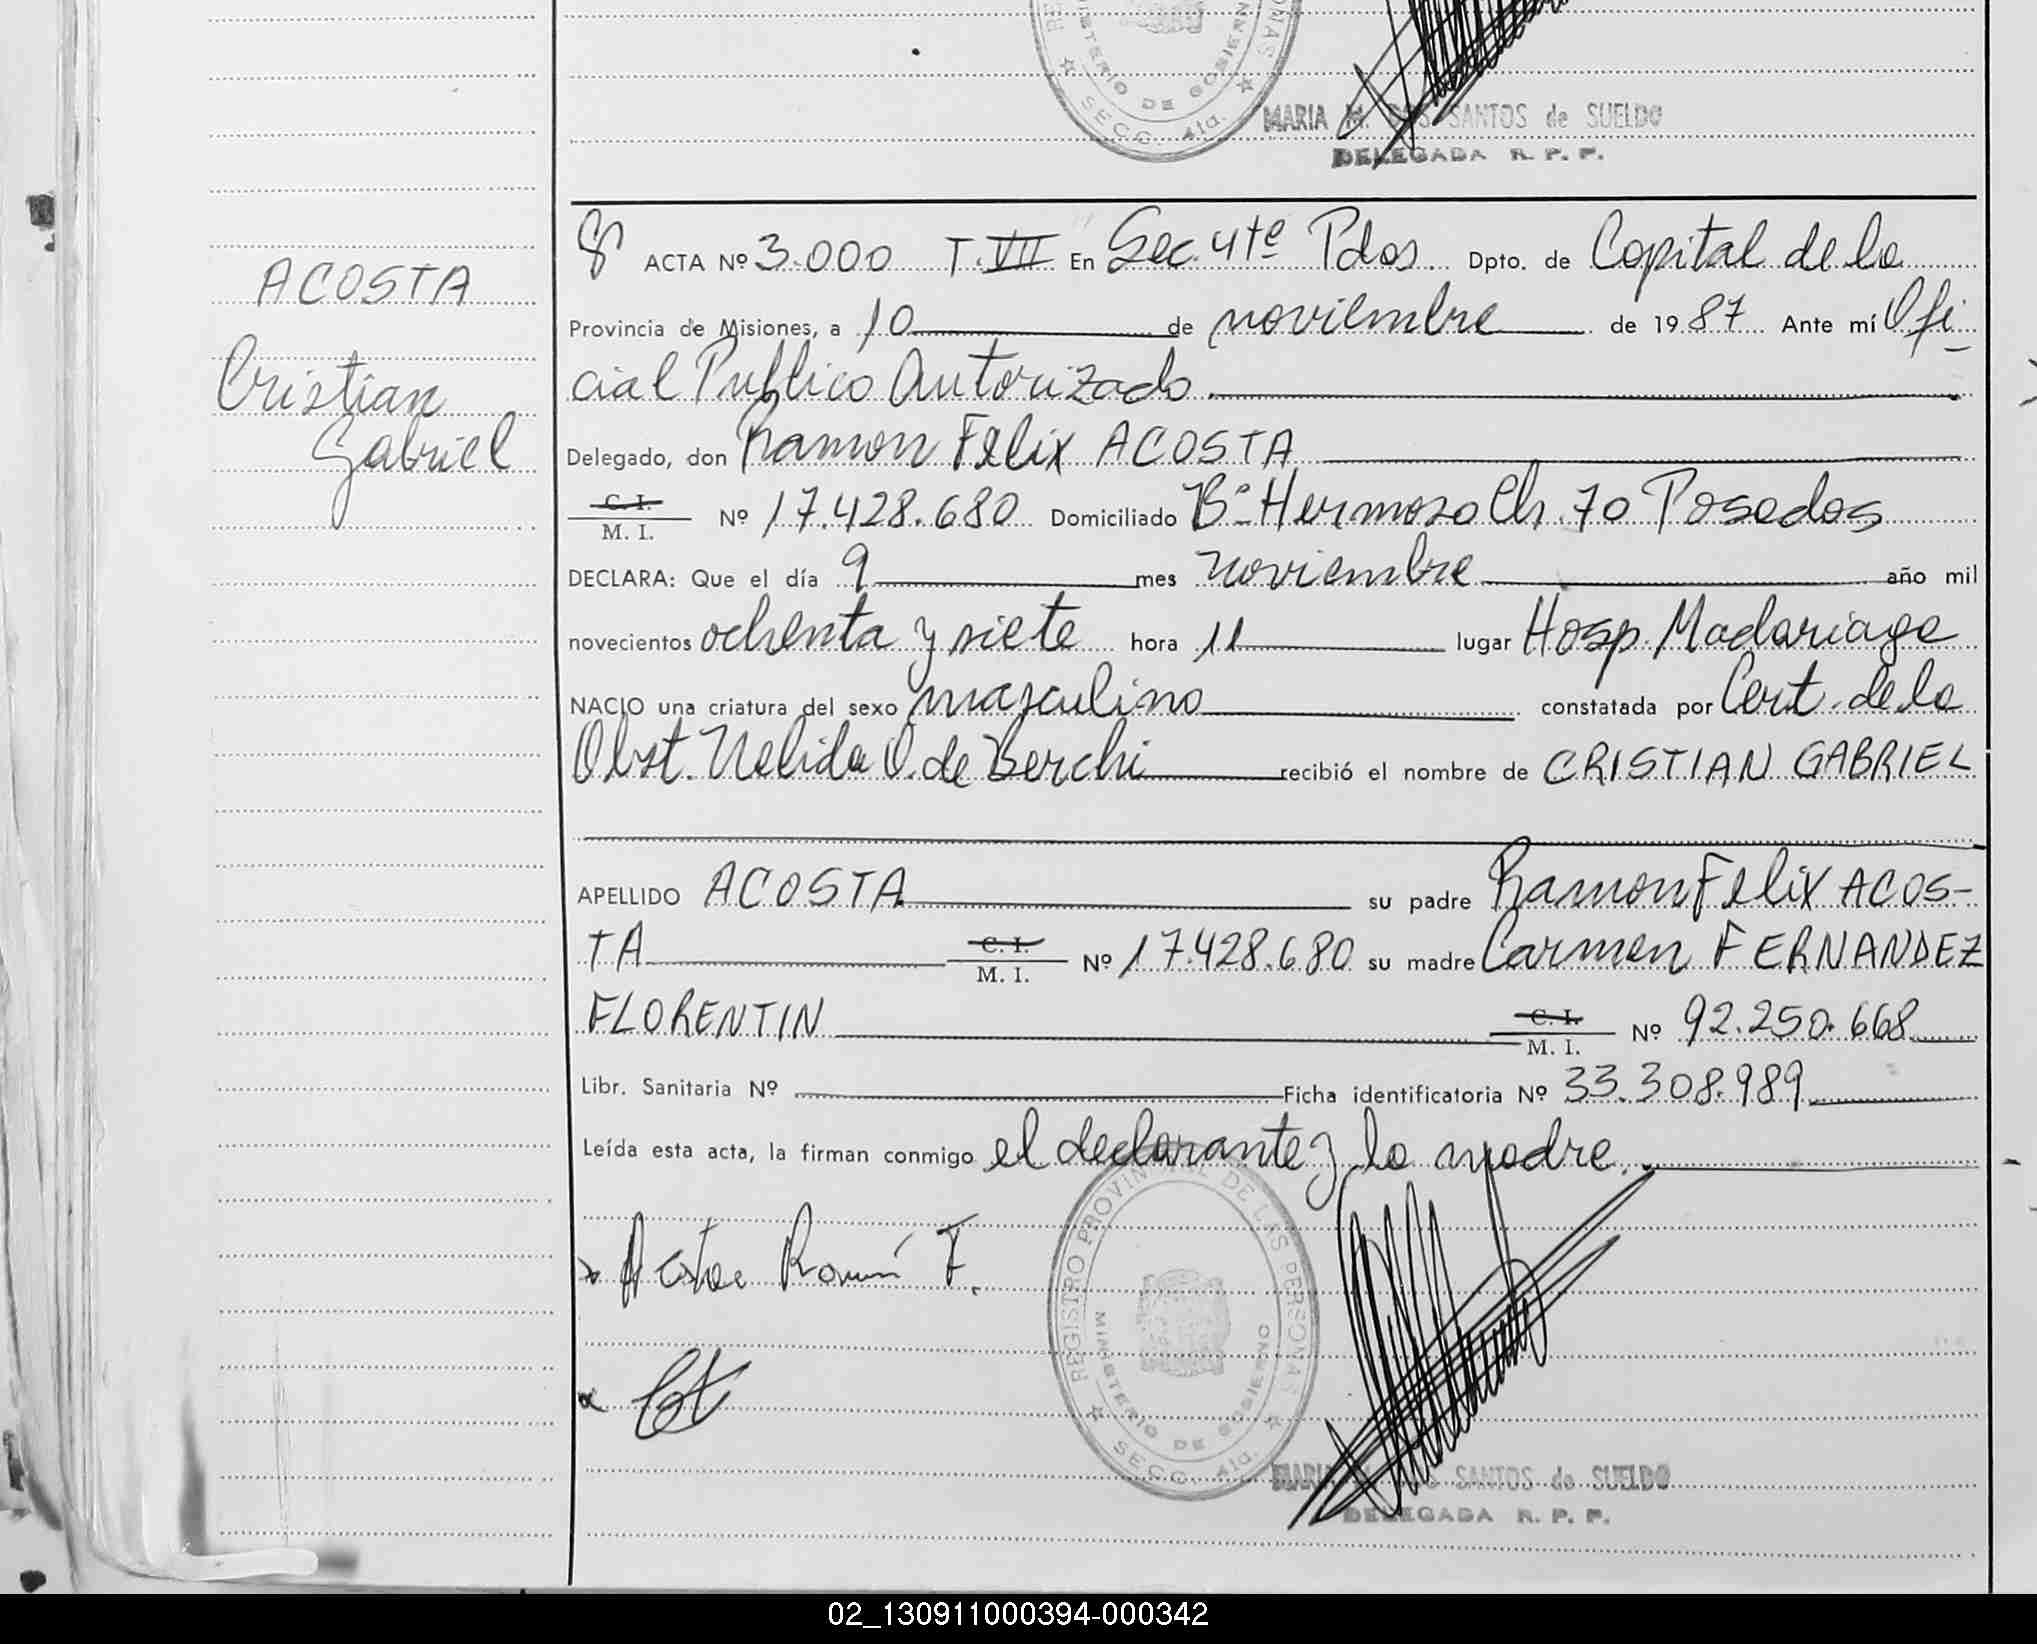 REGISTRO PROVINCIAL DE LAS PERSONAS
MINISTERIO DE GOBIERNO
SECC. 4ta.
MARIA M. DOS SANTOS de SUELDO
DELEGADA R. P. P.
ACOSTA
Cristian
Gabriel
ACTA Nº 3.000 T. VII En Sec. 4te Pdas. Dpto. de Capital de la
Provincia de Misiones, a 10 de noviembre de 1987 Ante mí Ofi-
cial Publico Autorizado
Delegado, don Ramon Felix ACOSTA
C. I.
M. I. Nº 17.428.680 Domiciliado Bº Hermoso Ch. 70 Posadas
DECLARA: Que el día 9 mes noviembre año mil
novecientos ochenta y siete hora 11 lugar Hosp. Madariaga
NACIO una criatura del sexo masculino constatada por Cert. de la
Obst. Nelida O. de Berchi recibió el nombre de CRISTIAN GABRIEL
APELLIDO ACOSTA su padre Ramon Felix ACOS-
TA C. I. M. I. Nº 17.428.680 su madre Carmen FERNANDEZ
FLORENTIN C. I. M. I. Nº 92.250.668
Libr. Sanitaria Nº Ficha identificatoria Nº 33.308.989
Leída esta acta, la firman conmigo el declarante y la madre.
Acosta Ramón F.
REGISTRO PROVINCIAL DE LAS PERSONAS
MINISTERIO DE GOBIERNO
SECC. 4ta.
MARIA M. DOS SANTOS de SUELDO
DELEGADA R. P. P.
02_130911000394-000342